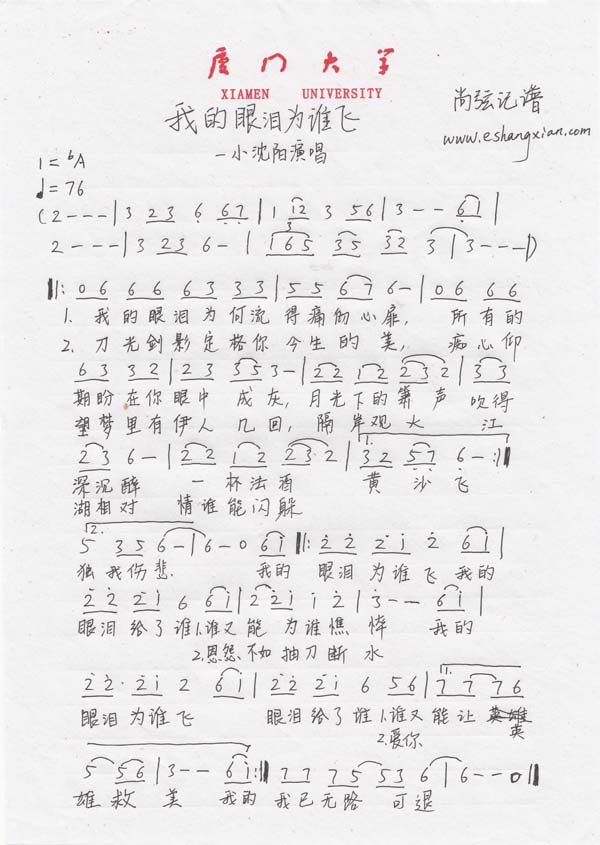 厦门大学
XIAMEN UNIVERSITY
尚弦记谱
www.eshangxian.com
我的眼泪为谁飞
—小沈阳演唱
1=♭A
♩=76
(2---|3 23 6 67|1 12 3 56|3--61|
2---|3 23 6-|165 35 32 3|3---|)
‖:06 66 63 33|55 676-|06 66
1. 我的眼泪为何流 得痛彻心扉, 所有的
2. 刀光剑影定格你 今生的美, 痴心仰
63 32|23 353-|22 12 232|33
期盼在你眼中 成灰,月光下的箫声 吹得
望梦里有伊人 几回,隔岸观火 江
1.
23 6-|22 12 23·2|32 576-:‖
深沉醉 一杯法酒 黄沙飞
湖相对 情谁能闪躲
2.
5 356-|6-0 6i‖:22 2i 2 6i|
独我伤悲 我的 眼泪为谁飞 我的
22 2i 6 6i|22i i2|3--6i|
眼泪给了谁1.谁又能 为谁憔悴 我的
2.恩怨不如抽刀断水
1.
22· 2i 2 6i|22 2i 6 56|77 76
眼泪为谁飞 眼泪给了谁1.谁又能让
2.爱你 英
5 56|3--6i:‖77 75 53 6|6--0‖
雄救美 我的 我已无路 可退